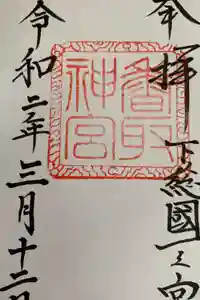 奉拜
下総國一之宮
香取
神宮
令和二年三月十二日